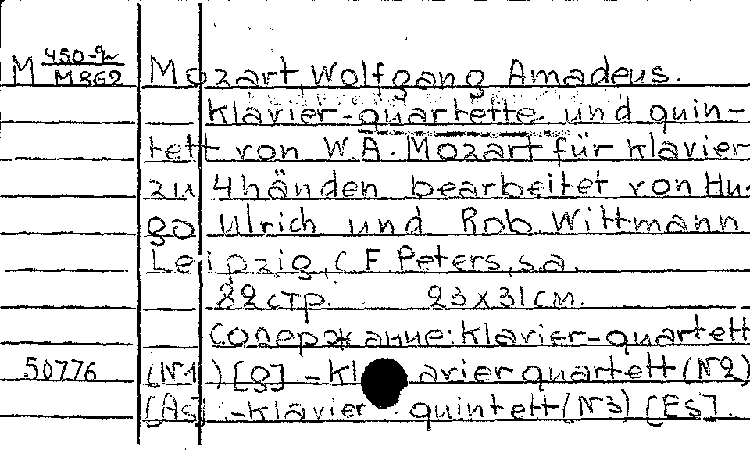 M 450-4/M862 Mozart, Wolfgang Amadeus.
Klavier-quartette und quin-
tett von W.A. Mozart für klavier
zu 4 händen bearbeitet von Hu-
go Ulrich und Rob. Wittmann
Leipzig, C F Peters, s.a.
82 стр. 23 x 31 см.
Содержание: Klavier-quartett
50776 (N1) [g] - Klavier quartett (N2)
[As] - Klavier quintett (N3) [Es].